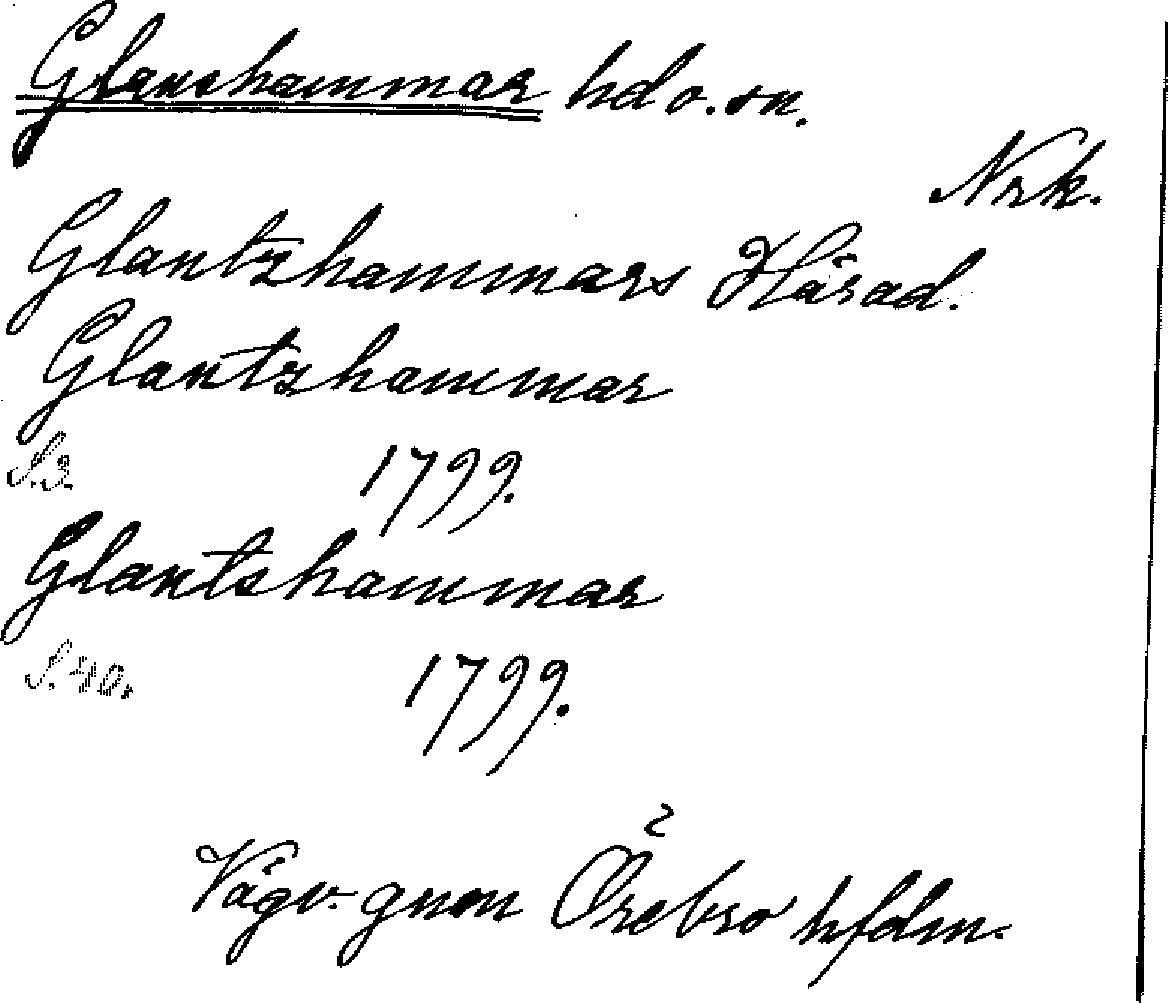 Glanshammar hd o. sn.
Nrk.
Glantzhammars Härad.
Glantzhammar
S. 3. 1799.
Glantshammar
S. 40. 1799.
Vägv. gnm Örebro hfdm.